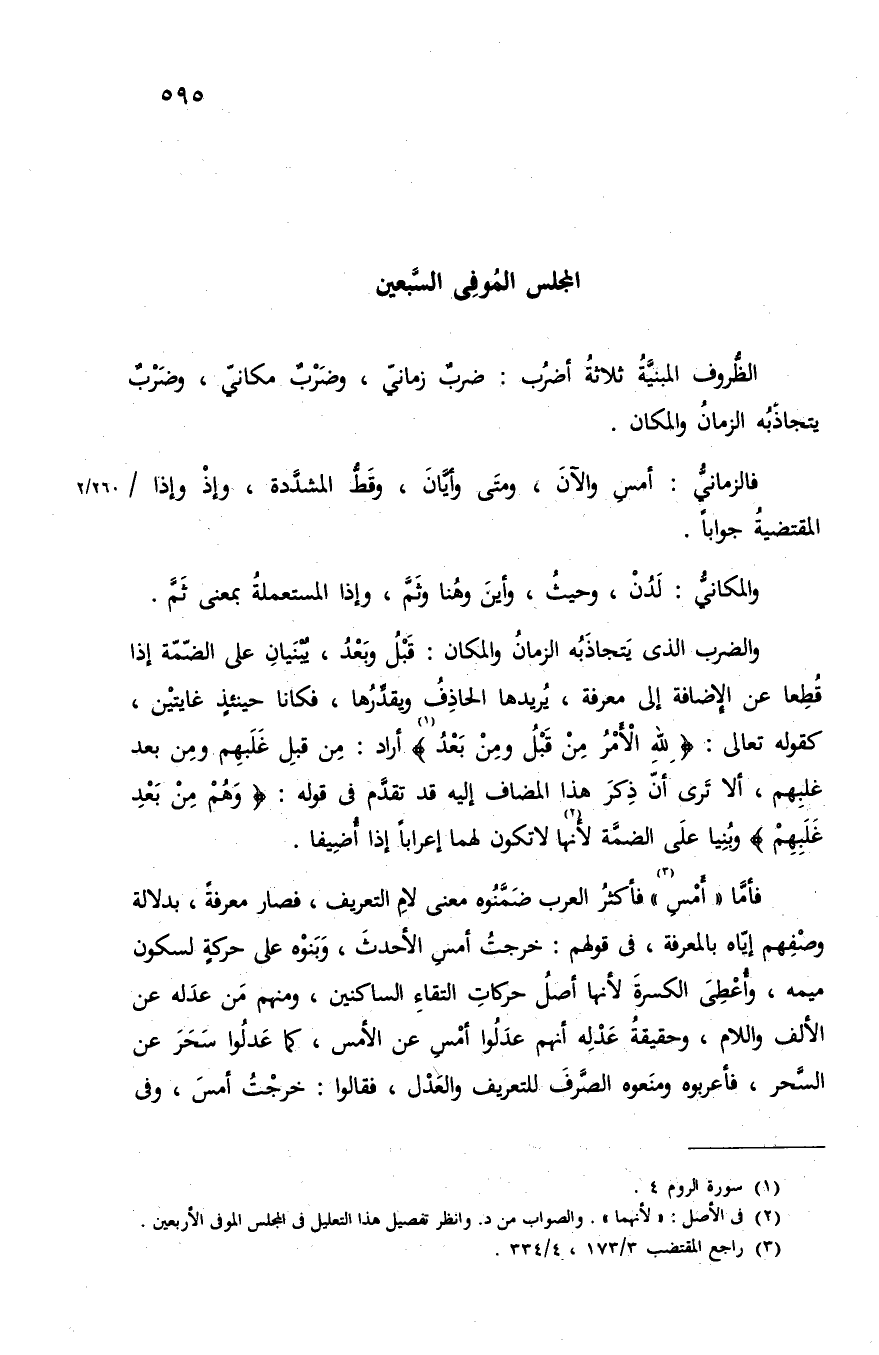 ٥٩٥
المجلس المُوفِى السَّبعين
الظُّروف المبنيَّةُ ثلاثةُ أضرُب : ضربٌ زمانيّ ، وضَرْبٌ مكانيّ ، وضَرْبٌ
يتجاذَبُه الزمانُ والمكان .
فالزمانيُّ : أمسِ والآنَ ، ومتَى وأيَّانَ ، وقَطُّ المشدَّدة ، وإذْ وإذا / ٢/٢٦٠
المقتضيةُ جواباً .
والمكانيُّ : لَدُنْ ، وحيثُ ، وأينَ وهُنا وثَمَّ ، وإذا المستعملةُ بمعنى ثَمَّ .
والضرب الذى يَتجاذَبُه الزمانُ والمكان : قَبْلُ وبَعْدُ ، يُبْنَيانِ على الضمّة إذا
قُطِعا عن الإضافة إلى معرفة ، يُريدها الحاذِفُ ويقدِّرُها ، فكانا حينئذٍ غايتيْن ،
كقوله تعالى : ﴿ لِلهِ الْأَمْرُ مِنْ قَبْلُ ومِنْ بَعْدُ ﴾(١) أراد : مِن قبلِ غَلَبهِم ومِن بعد
غلبِهم ، ألا تَرى أنّ ذِكرَ هذا المضاف إليه قد تقدَّم فى قوله : ﴿ وَهُمْ مِنْ بَعْدِ
غَلَبِهِمْ ﴾ وبُنِيا علَى الضمَّة لأنها(٢) لاتكون لهما إعراباً إذا أُضيفا .
فأمَّا « أَمْسِ »(٣) فأكثرُ العرب ضَمَّنُوه معنى لامِ التعريف ، فصار معرفةً ، بدلالة
وصْفِهم إيّاه بالمعرفة ، فى قولهم : خرجتُ أمسِ الأحدثَ ، وَبَنوْه على حركةٍ لسكون
ميمه ، وأُعْطِىَ الكسرةَ لأنها أصلُ حركاتِ التقاءِ الساكنين ، ومنهم مَن عدَله عن
الألف واللام ، وحقيقةُ عَدْلِه أنهم عدَلُوا أمْسِ عن الأمس ، كما عَدلُوا سَحَرَ عن
السَّحر ، فأعربوه ومنَعوه الصرَّفَ للتعريف والعَدْل ، فقالوا : خرجْتُ أمسَ ، وفى
(١) سورة الروم ٤ .
(٢) فى الأصل : « لأنهما » . والصواب من د. وانظر تفصيل هذا التعليل فى المجلس الموفى الأربعين .
(٣) راجع المقتضب ١٧٣/٣ ، ٣٣٤/٤ .